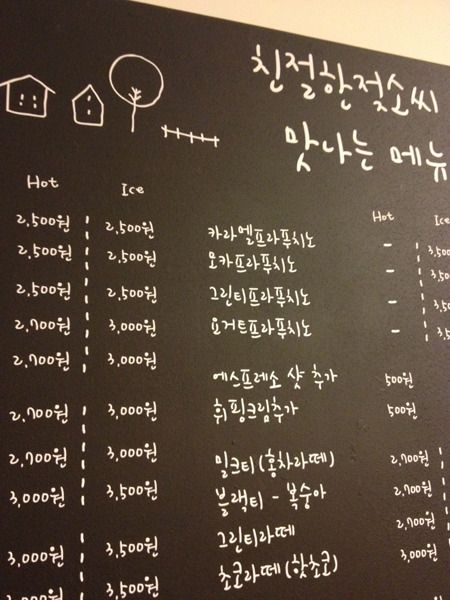 친절한젖소씨
맛나는 메뉴
Hot Ice
2,500원 2,500원
2,500원 2,500원
2,500원 2,500원
2,700원 3,000원
2,700원 3,000원
2,700원 3,000원
2,700원 3,000원
3,000원 3,500원
3,000원 3,500원
3,500원
Hot Ice
카라멜프라푸치노 -
모카프라푸치노 -
그린티프라푸치노 -
요거트프라푸치노 -
에스프레소 샷 추가 500원
휘핑크림추가 500원
밀크티(홍차라떼) 2,700원
블랙티 - 복숭아 2,700원
그린티라떼 2,700원
쵸코라떼(핫쵸코) 3,000원